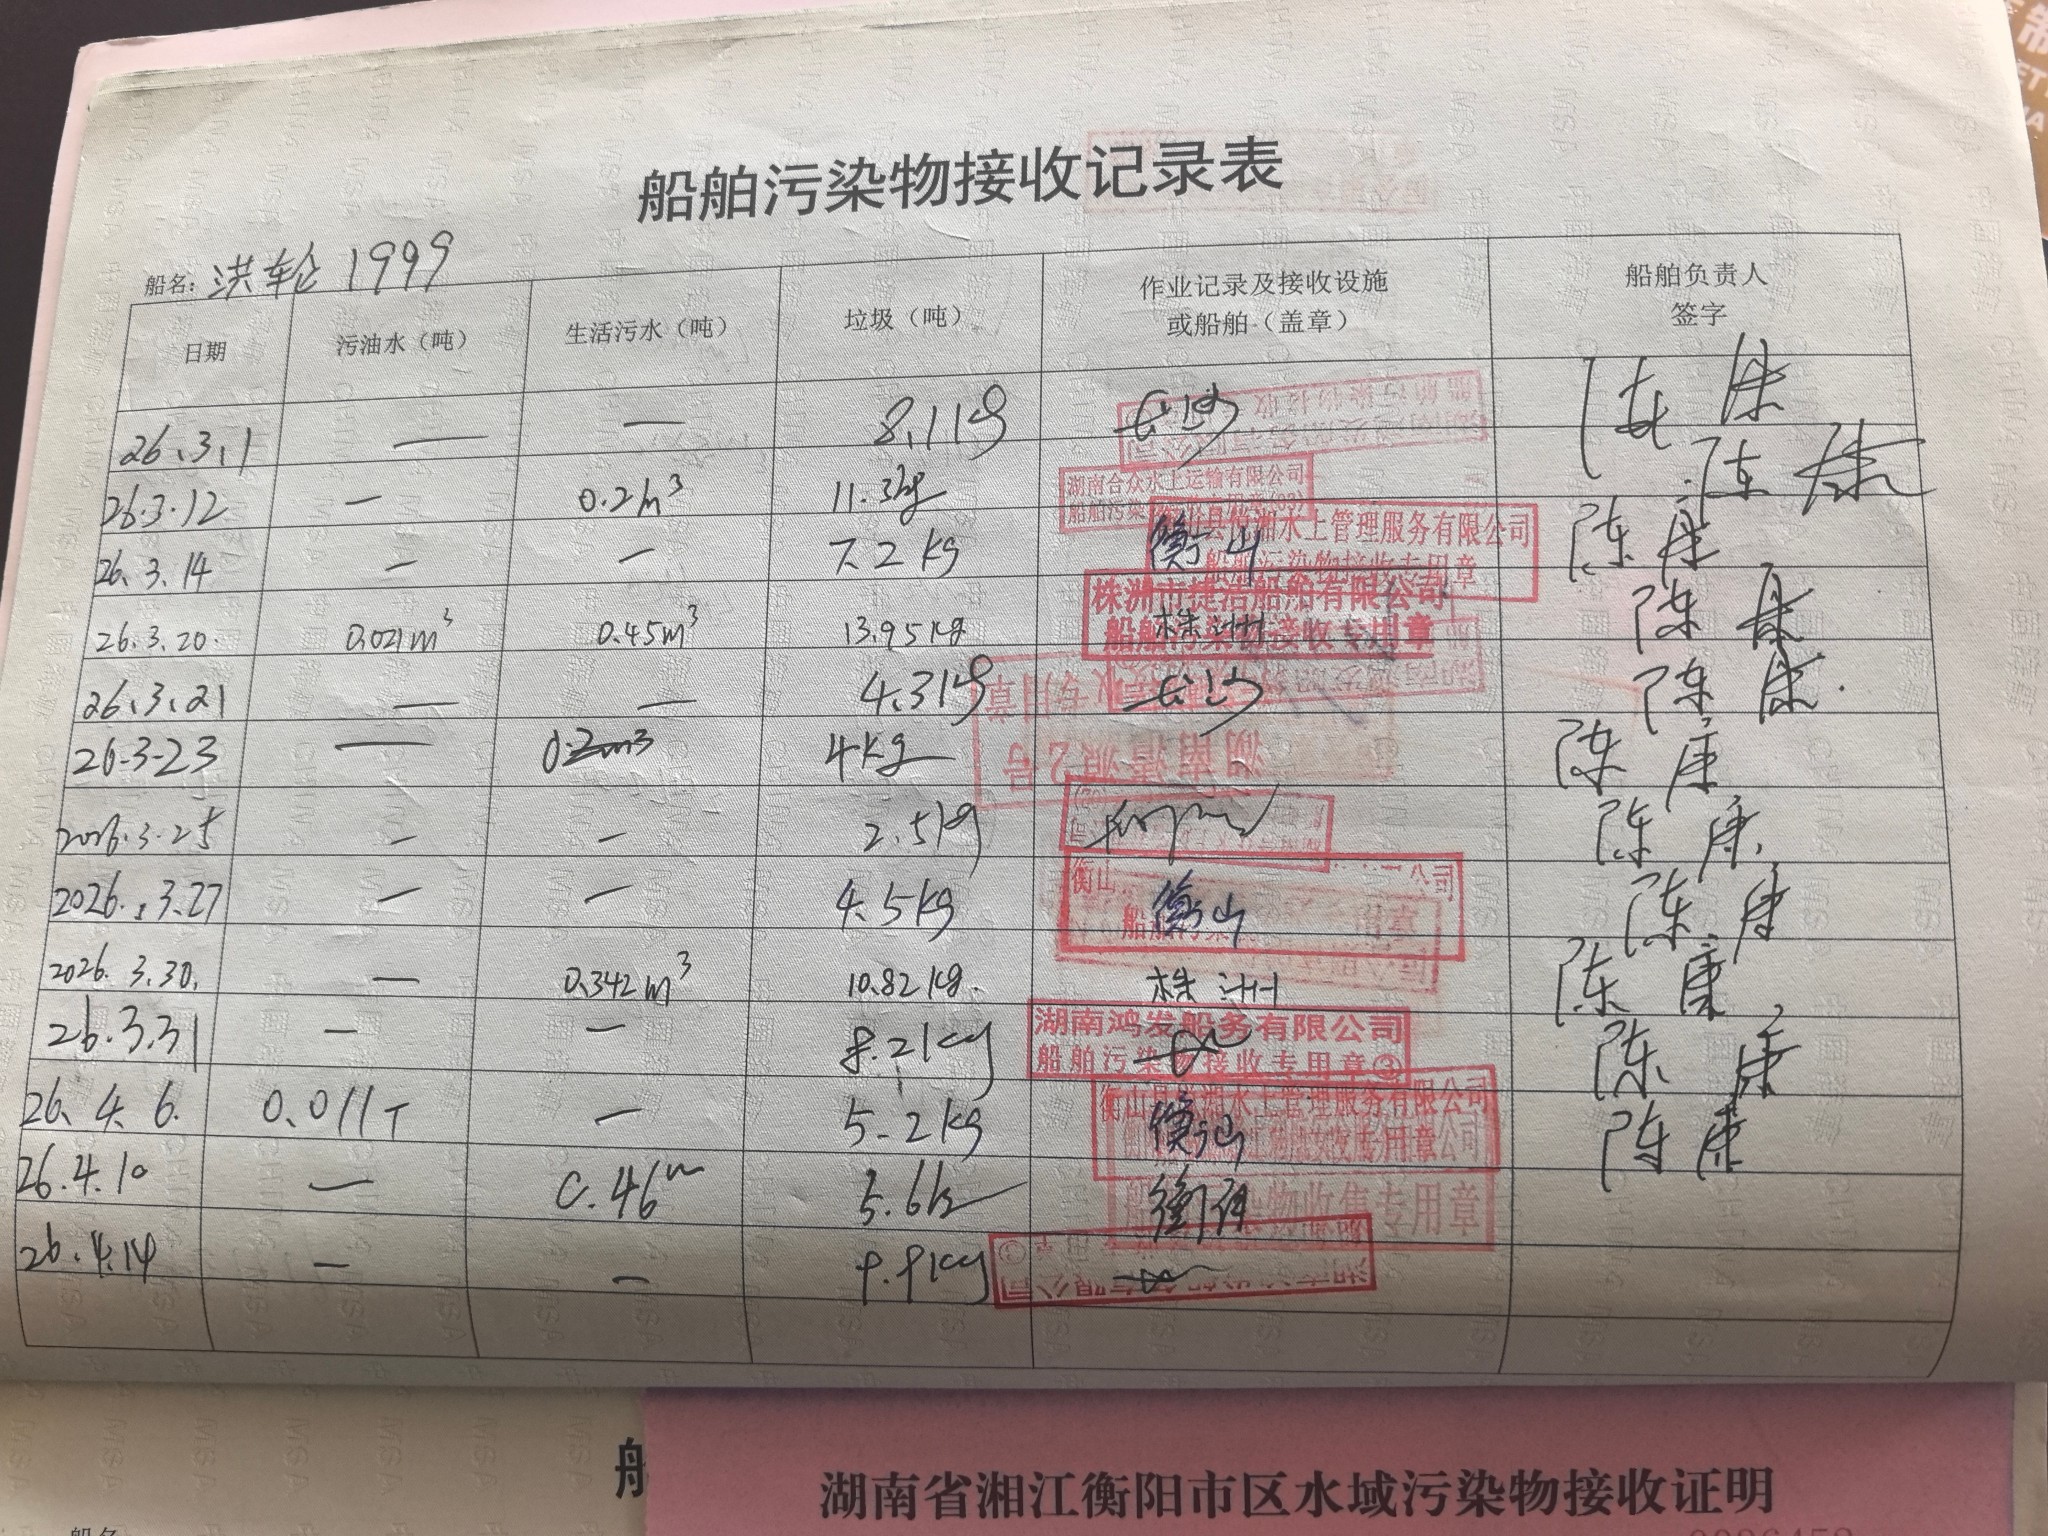 船舶污染物接收记录表
船名: 洪轮 1999
日期 污油水（吨） 生活污水（吨） 垃圾（吨） 作业记录及接收设施或船舶（盖章） 船舶负责人签字
26.3.1 — — 8.1kg 长沙 陈康
26.3.12 — 0.2m³ 11.3kg 湖南合众水上运输有限公司 陈康
26.3.14 — — 7.2kg 衡山 水上管理服务有限公司 船舶污染物接收专用章 陈康
26.3.20. 0.021m³ 0.45m³ 13.95kg 株洲 株洲市捷洁船舶有限公司 陈康
26.3.21 — — 4.3kg 长沙 陈康
26.3.23 — 0.2m³ 4kg 陈康
2026.3.25 — — 2.5kg 陈康
2026.3.27 — — 4.5kg 衡山 陈康
2026.3.30. — 0.342m³ 10.82kg. 株洲 陈康
26.3.31 — — 8.2kg 湖南鸿发船务有限公司 船舶污染物接收专用章③ 陈康
26.4.6. 0.011T — 5.2kg 衡山 水上管理服务有限公司 陈康
26.4.10 — 0.46 5.6k 衡阳
26.4.14 — — 9.9kg
湖南省湘江衡阳市区水域污染物接收证明
船名